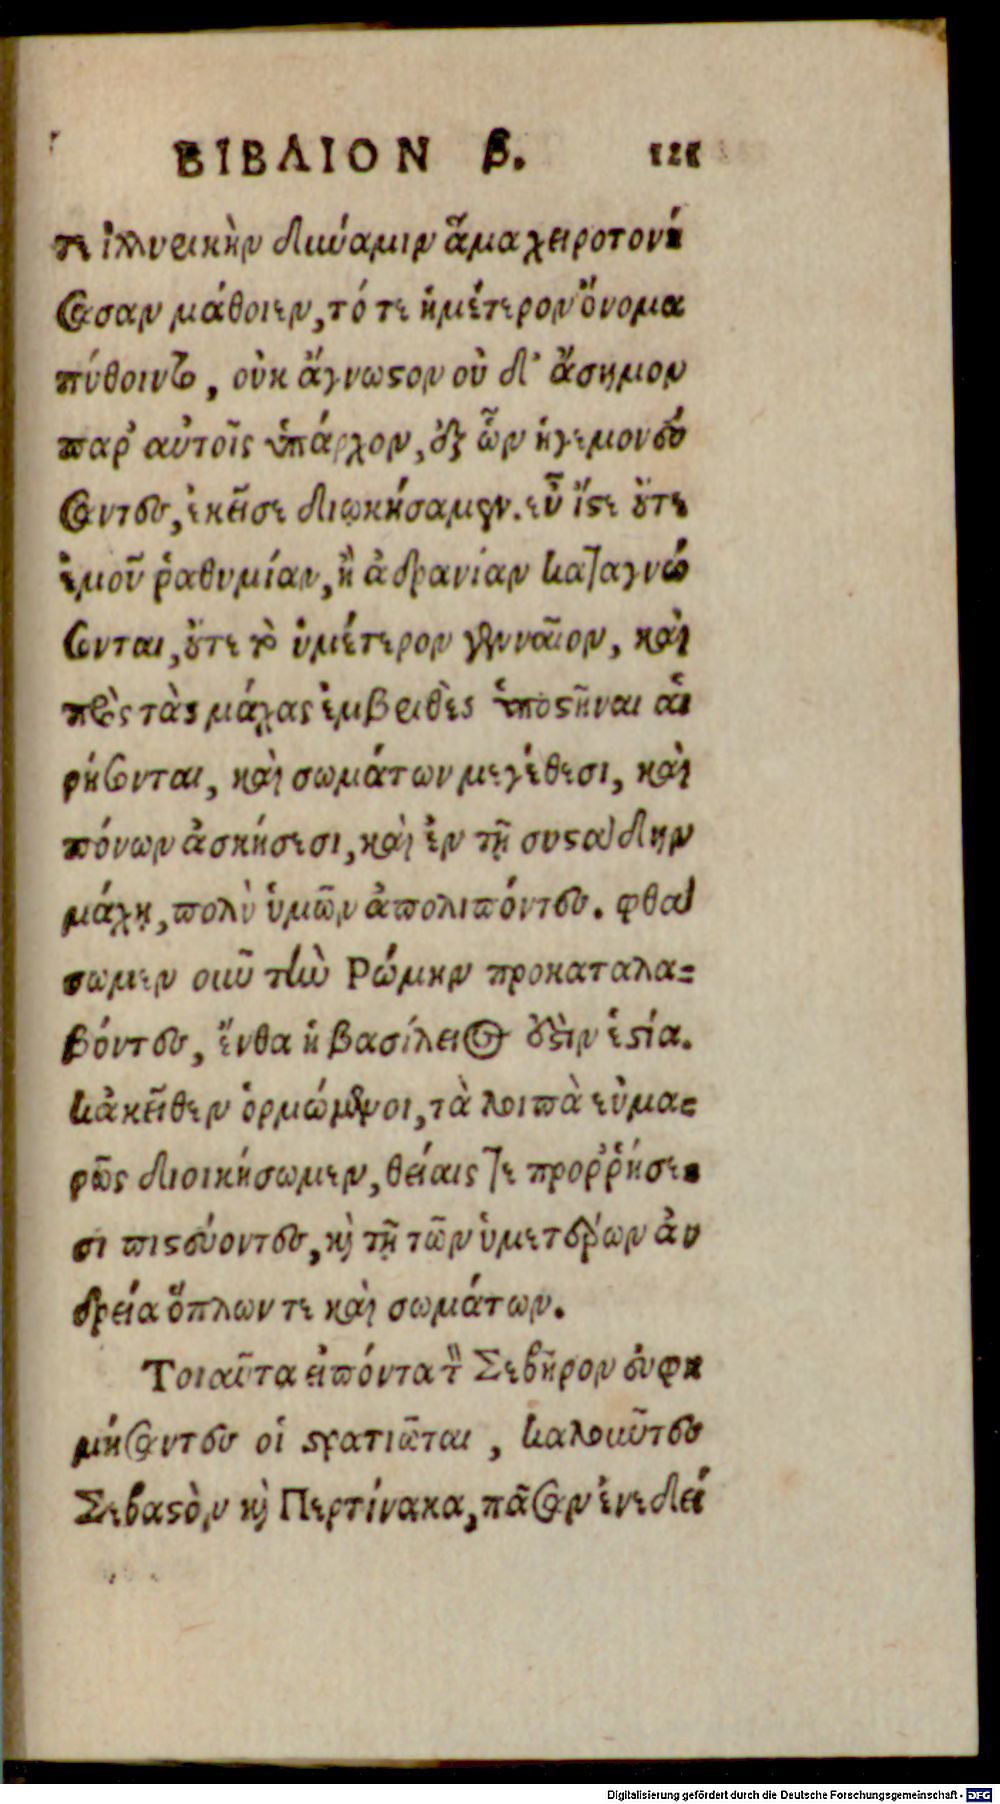 ΒΙΒΛΙΟΝ β. 121
τε ἰλλυρικὴν δύναμιν ἅμα χειροτονή
σασαν μάθοιεν, τό τε ἡμέτερον ὄνομα
πύθοιντο, οὐκ ἄγνωστον οὐ δ' ἄσημον
παρ' αὐτοῖς ὑπάρχον, ἐξ ὧν ἡγεμονεύ
σαντες, ἐκεῖσε διῳκήσαμεν. εὖ ἴστε οὔτε
ἐμοῦ ῥαθυμίαν, ἢ ἀδρανίαν καταγνώ
σονται, οὔτε τὸ ὑμέτερον γενναῖον, καὶ
πρὸς τὰς μάχας ἐμβριθὲς ὑποστῆναι αἱ
ρήσονται, καὶ σωμάτων μεγέθεσι, καὶ
πόνων ἀσκήσεσι, καὶ ἐν τῇ συσταδὴν
μάχῃ, πολὺ ὑμῶν ἀπολιπόντες. φθά
σωμεν οὖν τὴν Ρώμην προκαταλα-
βόντες, ἔνθα ἡ βασίλειος ἐστὶν ἑστία.
κἀκεῖθεν ὁρμώμενοι, τὰ λοιπὰ εὐμα-
ρῶς διοικήσωμεν, θείαις τε προῤῥήσε-
σι πιστεύοντες, καὶ τῇ τῶν ὑμετέρων ἀν
δρεία ὅπλων τε καὶ σωμάτων.
Τοιαῦτα εἰπόντα τὸν Σεβῆρον εὐφη
μήσαντες οἱ στρατιῶται, καλοῦντες
Σεβαστὸν καὶ Περτίνακα, πᾶσαν ἐνεδεί
Digitalisierung gefördert durch die Deutsche Forschungsgemeinschaft - DFG